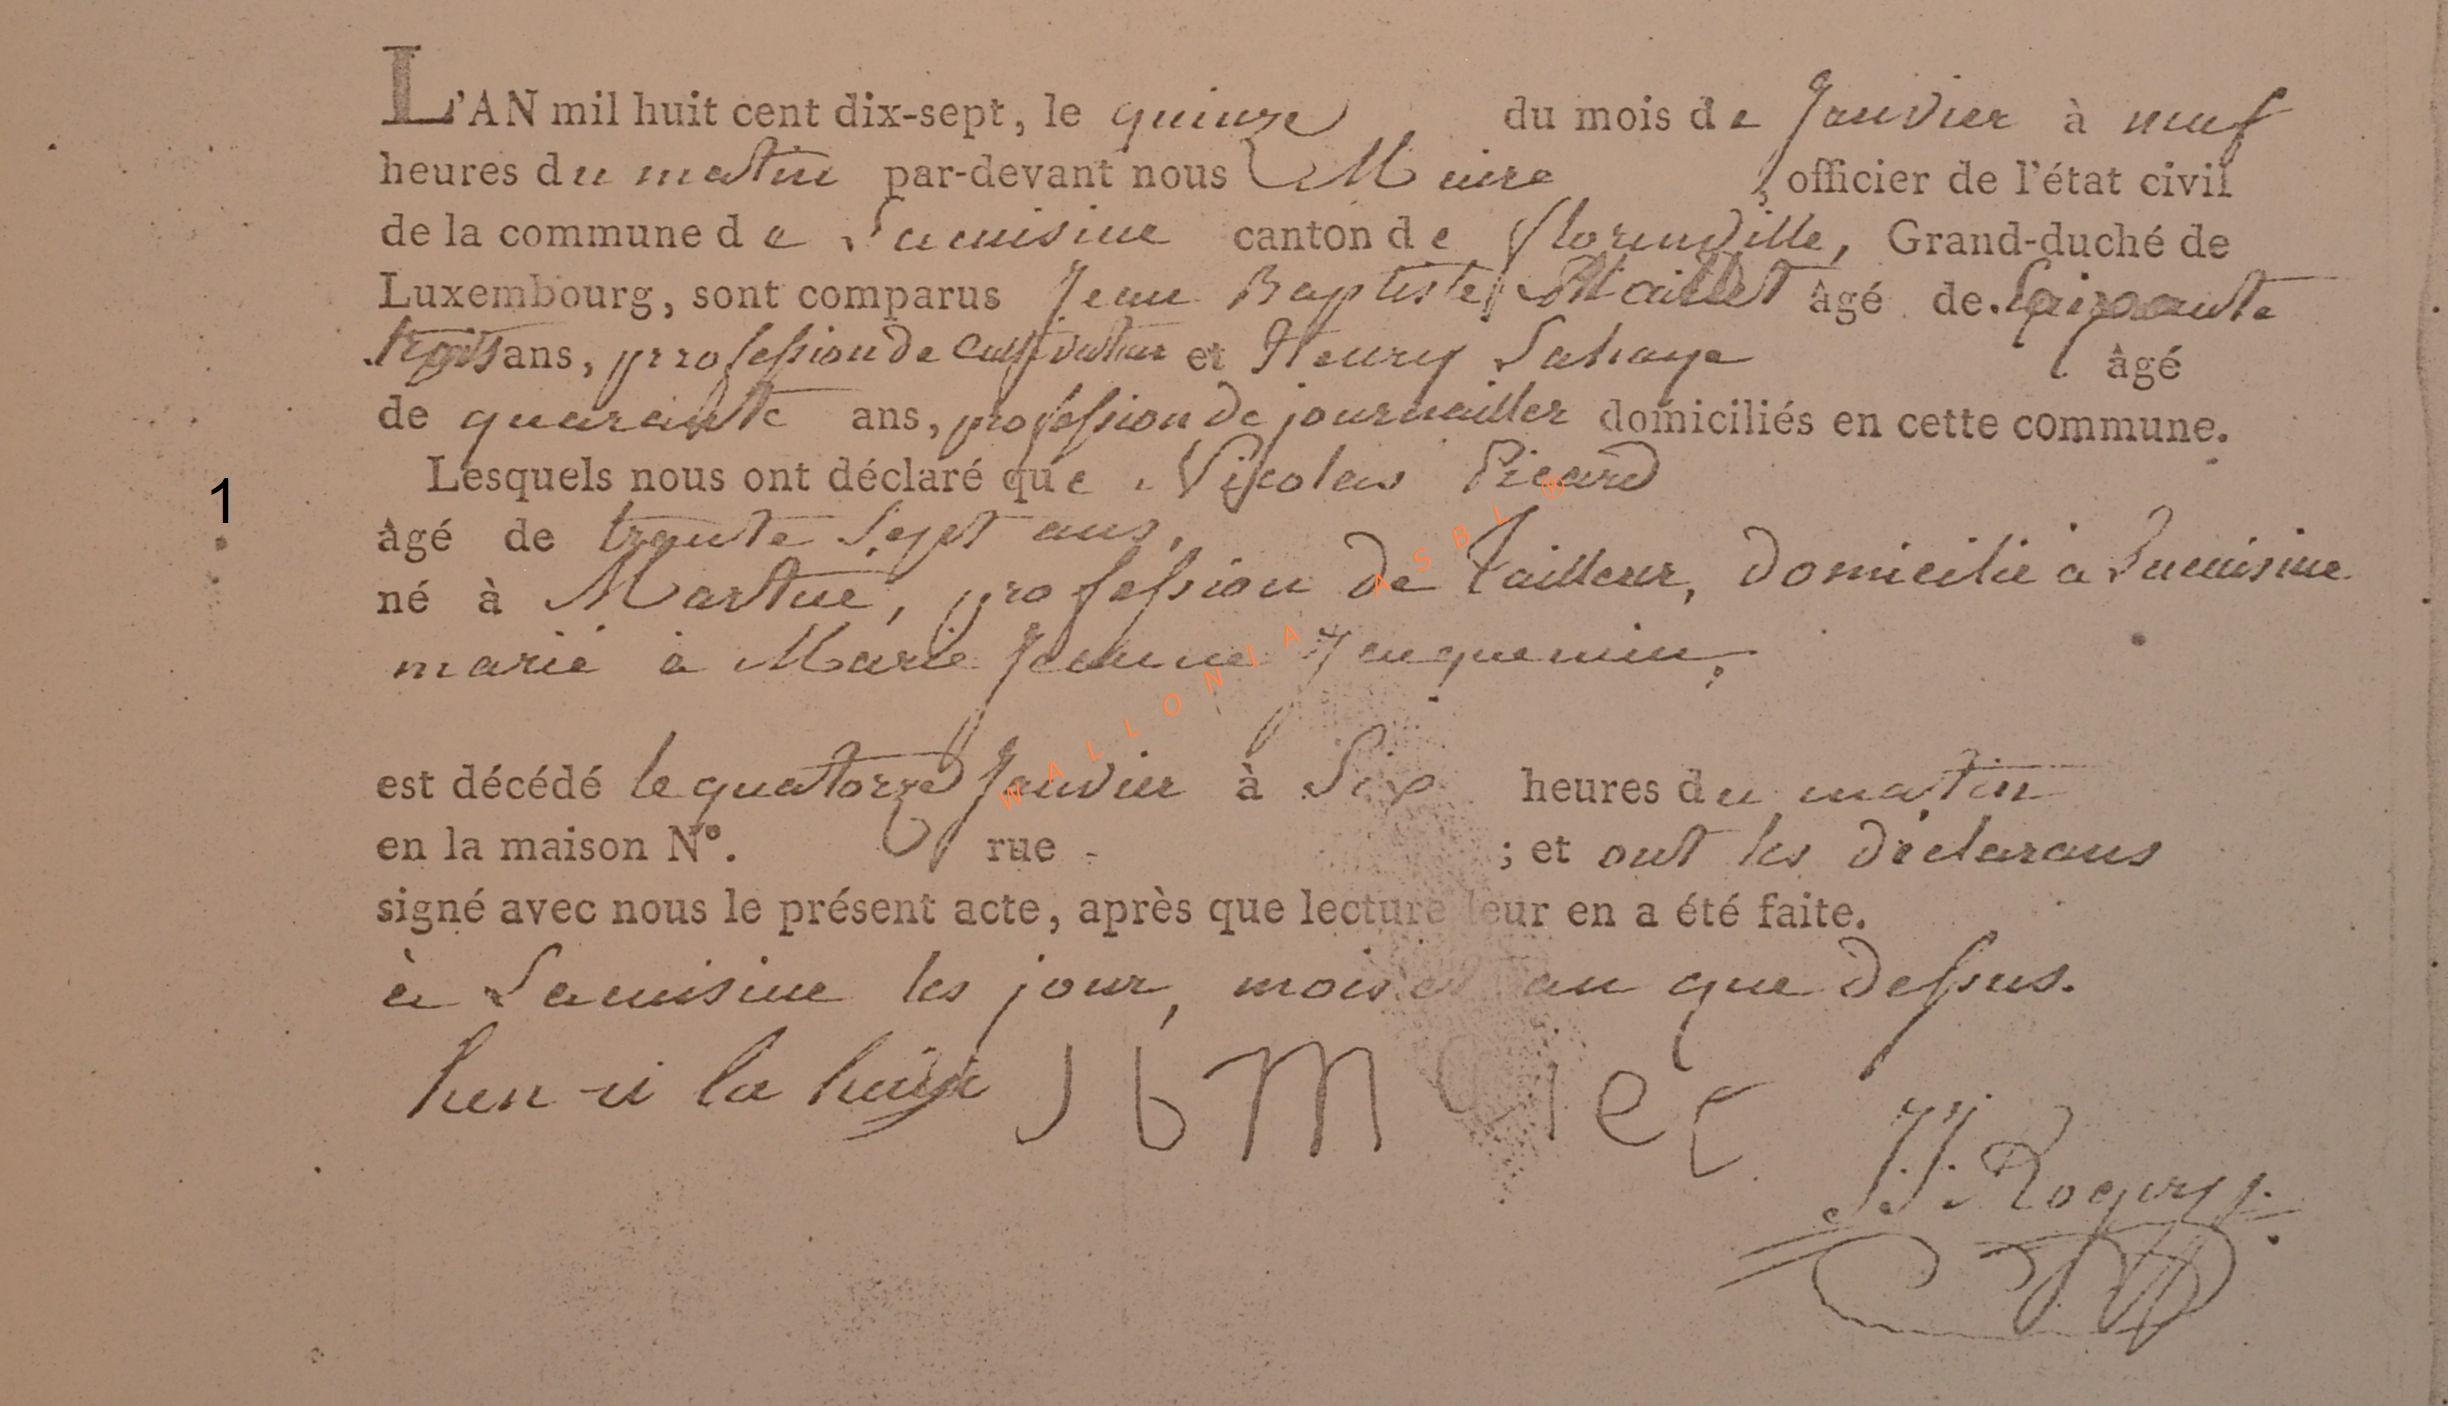 L'AN mil huit cent dix-sept, le quinze du mois de Janvier à neuf
heures du matin par-devant nous Maire, officier de l'état civil
de la commune de Lacuisine canton de florenville, Grand-duché de
Luxembourg, sont comparus Jean Baptiste Maillet âgé de Soixante
trois ans, profession de Cultivateur et Henry Lahaye âgé
de quarante ans, profession de journailler domiciliés en cette commune.
Lesquels nous ont déclaré que Nicolas Picard
1
âgé de trente Sept ans,
né à Martué, profession de Tailleur, domicilié a Lacuisine
marié a Marie Jeanne Jacquemin,
est décédé le quatorze Janvier à Six heures du matin
en la maison N°. rue ; et ont les déclarans
signé avec nous le présent acte, après que lecture leur en a été faite.
à Lacuisine les jour, mois et an que dessus.
hen-ri la JbM
J.J. Rogery
WALLONIA ASBL ®